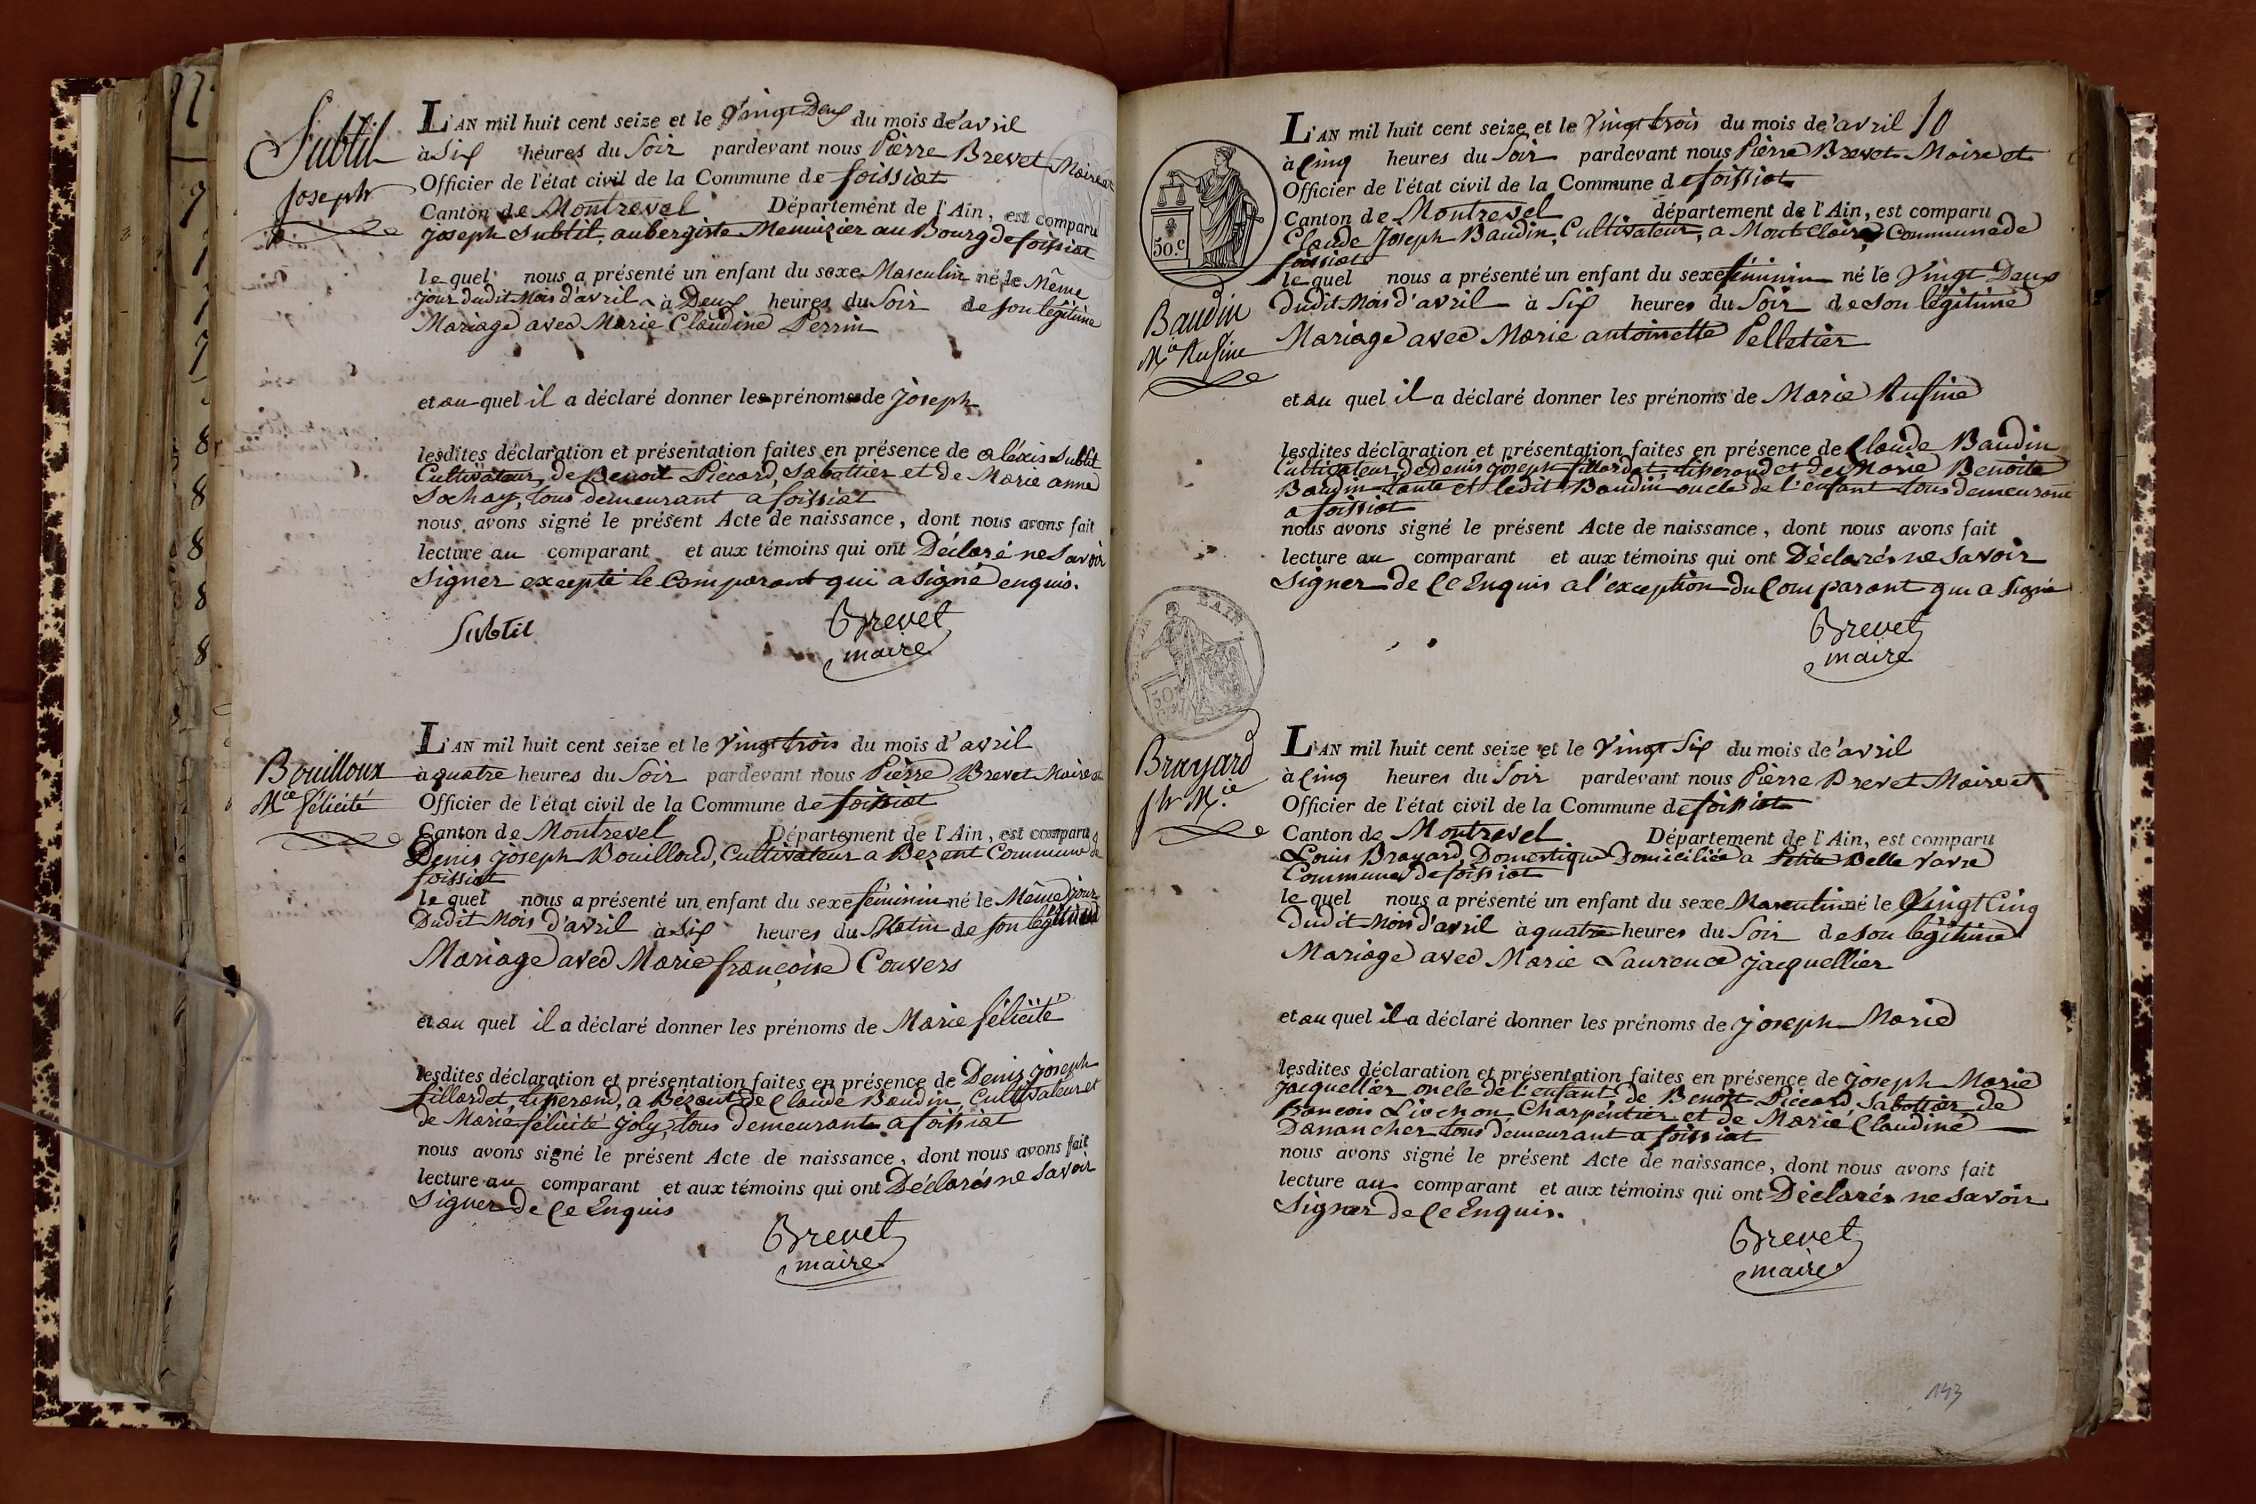 Subtil
Joseph
L'AN mil huit cent seize et le Vingt Deux du mois de avril
à Six heures du Soir pardevant nous Pierre Brevet Maire et
Officier de l'état civil de la Commune de foissiat
Canton de Montrevel Département de l'Ain, est comparu
Joseph Subtil, aubergiste Menuizier au Bourg de foissiat
le quel nous a présenté un enfant du sexe Masculin né le Même
jour dudit Mois d'avril à Deux heures du Soir de son légitime
Mariage avec Marie Claudine Perrin
et au quel il a déclaré donner les prénoms de Joseph
lesdites déclaration et présentation faites en présence de aléxis Subtil
Cultivateur, de Benoit Piccard, Sabottier et de Marie anne
Sochay, tous demeurant a foissiat
nous avons signé le présent Acte de naissance, dont nous avons fait
lecture au comparant et aux témoins qui ont Déclaré ne Savoir
Signer excepté le Comparant qui a Signé enquis.
Subtil
Brevet
maire
Bouilloux
Mie félicité
L'AN mil huit cent seize et le Vingt trois du mois d'avril
à quatre heures du Soir pardevant nous Pierre Brevet Maire et
Officier de l'état civil de la Commune de foissiat
Canton de Montrevel Département de l'Ain, est comparu
Denis Joseph Bouilloud, Cultivateur a Bezent Commune de
foissiat
le quel nous a présenté un enfant du sexe féminin né le Même jour
Dudit Mois d'avril à Six heures du Matin de son légitime
Mariage avec Marie françoise Couvers
et au quel il a déclaré donner les prénoms de Marie félicité
lesdites déclaration et présentation faites en présence de Denis Joseph
fillardet tisserand, a Bézent de Claude Baudin Cultivateur et
de Marie félicité Joly, tous demeurants a foissiat
nous avons signé le présent Acte de naissance, dont nous avons fait
lecture au comparant et aux témoins qui ont Déclarés ne Savoir
Signer de Ce Enquis
Brevet
maire
10
50.c
Baudin
Mie Rufine
L'AN mil huit cent seize et le Vingt trois du mois de avril
à Cinq heures du Soir pardevant nous Pierre Brevet Maire et
Officier de l'état civil de la Commune de foissiat
Canton de Montrevel département de l'Ain, est comparu
Claude Joseph Baudin, Cultivateur, a Mont Claire Commune de
foissiat
le quel nous a présenté un enfant du sexe féminin né le Vingt Deux
dudit Mois d'avril à Six heures du Soir de son légitime
Mariage avec Marie antoinette Pelletier
et au quel il a déclaré donner les prénoms de Marie Rufine
lesdites déclaration et présentation faites en présence de Claude Baudin
Cultivateur, de Denis Joseph fillardet, tisserand et de Marie Benoite
Baudin tante et ledit Baudin oncle de l'enfant tous demeurant
a foissiat
nous avons signé le présent Acte de naissance, dont nous avons fait
lecture au comparant et aux témoins qui ont Déclarés ne Savoir
Signer de Ce Enquis a l'exception du Comparant qui a Signé
Brevet
maire
AIN
50
Brayard
Jh Mie
L'AN mil huit cent seize et le Vingt Six du mois de avril
à Cinq heures du Soir pardevant nous Pierre Brevet Maire et
Officier de l'état civil de la Commune de foissiat
Canton de Montrevel Département de l'Ain, est comparu
Louis Brayard, Domestique Domiciliée a Petite Belle Vavre
Commune de foissiat
le quel nous a présenté un enfant du sexe Masculin né le Vingt Cinq
Dudit Mois d'avril à quatre heures du Soir de son légitime
Mariage avec Marie Laurence Jacquellier
et au quel il a déclaré donner les prénoms de Joseph Marie
lesdites déclaration et présentation faites en présence de Joseph Marie
Jacquellier oncle de l'enfant, de Benoit Piccard Sabottier de
francois Livchon Charpentier et de Marie Claudine
Danancher tous demeurant a foissiat
nous avons signé le présent Acte de naissance, dont nous avons fait
lecture au comparant et aux témoins qui ont Déclarés ne Savoir
Signer de Ce Enquis.
Brevet
maire
143